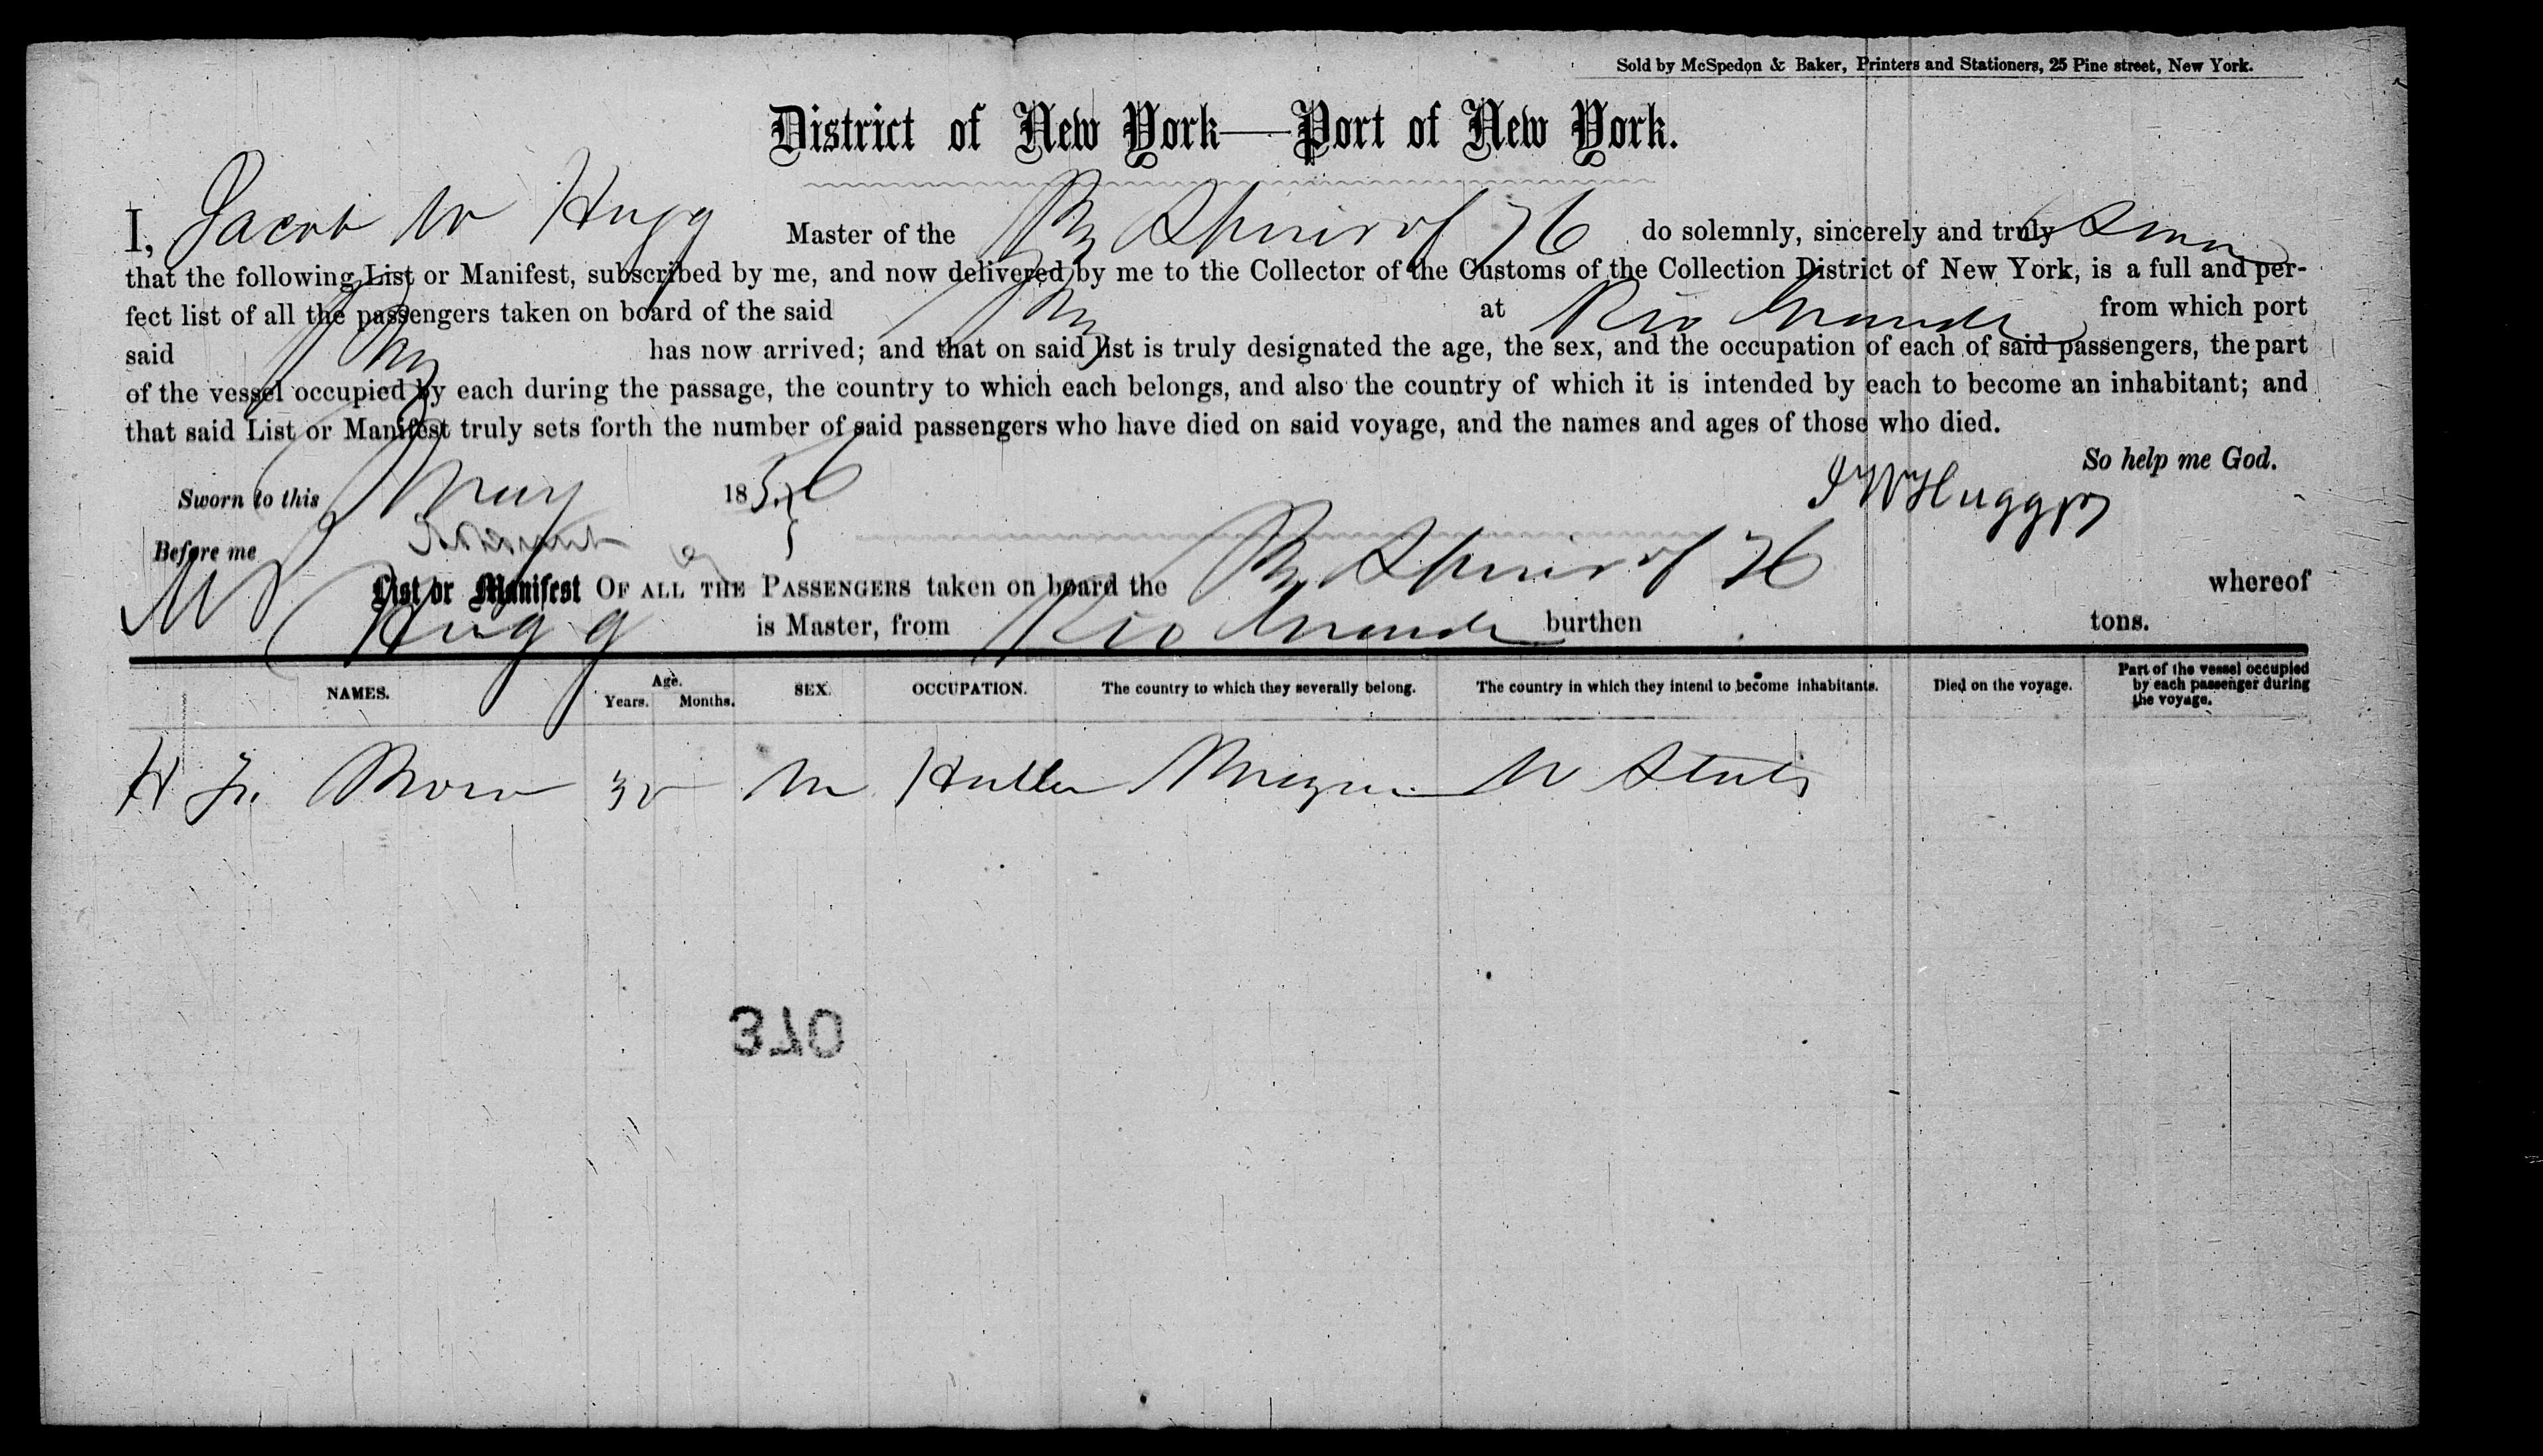 Sold by McSpedon & Baker, Printers and Stationers, 25 Pine street, New York.
District of New York—Port of New York.
I, Jacob W Hugg Master of the Bg Spirit of 76 do solemnly, sincerely and truly Swear
that the following List or Manifest, subscribed by me, and now delivered by me to the Collector of the Customs of the Collection District of New York, is a full and per-
fect list of all the passengers taken on board of the said Bg at Rio Grande from which port
said Bg has now arrived; and that on said list is truly designated the age, the sex, and the occupation of each of said passengers, the part
of the vessel occupied by each during the passage, the country to which each belongs, and also the country of which it is intended by each to become an inhabitant; and
that said List or Manifest truly sets forth the number of said passengers who have died on said voyage, and the names and ages of those who died.
So help me God.
Sworn to this May 1856 J W Hugg
Before me
List or Manifest OF ALL THE PASSENGERS taken on board the Bg Spirit of 76 whereof
Hugg is Master, from Rio Grande burthen tons.
NAMES. Age. Years. Months. SEX. OCCUPATION. The country to which they severally belong. The country in which they intend to become inhabitants. Died on the voyage. Part of the vessel occupied by each passenger during the voyage.
H M States
370